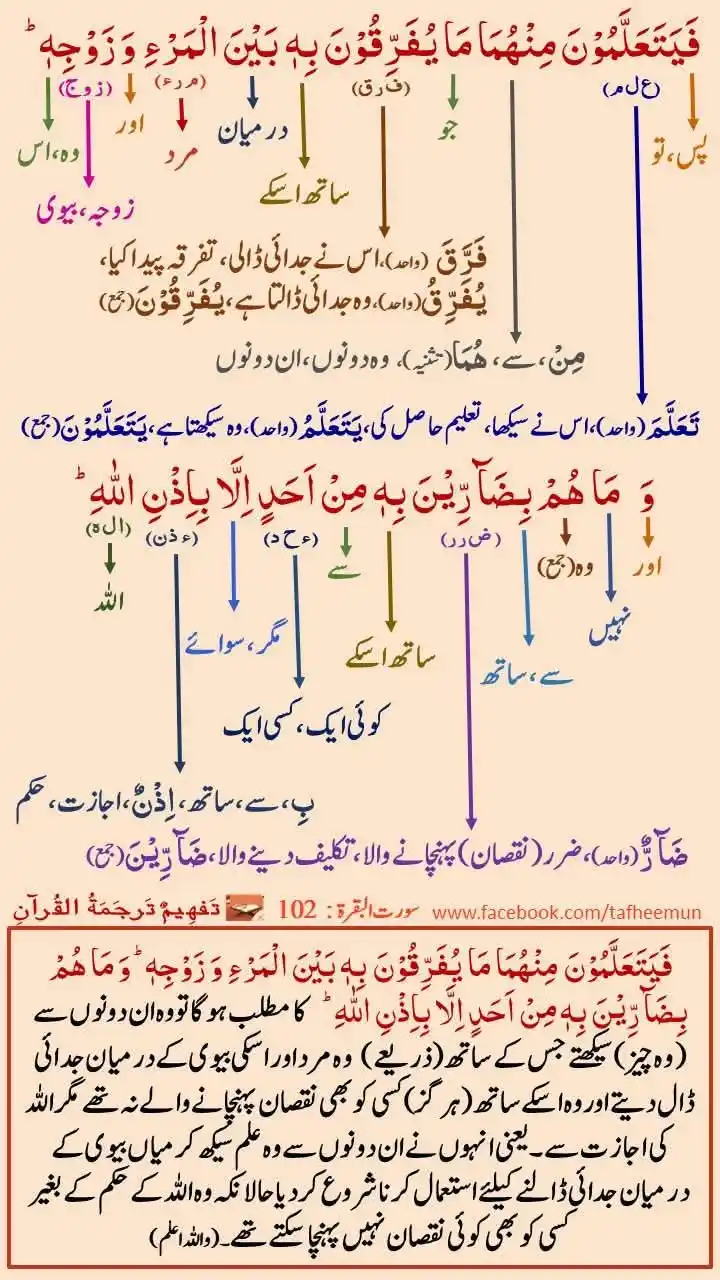 فَيَتَعَلَّمُوْنَ مِنْهُمَا مَا يُفَرِّقُوْنَ بِهٖ بَيْنَ الْمَرْءِ وَ زَوْجِهٖ ؕ
(ع ل م) (ف ر ق) (م ر ء) (ز و ج)
پس، تو
جو
درمیان
مرد
اور
وہ، اس
ساتھ اسکے
زوجہ، بیوی
فَرَّقَ (واحد)، اس نے جدائی ڈالی، تفرقہ پیدا کیا،
يُفَرِّقُ (واحد)، وہ جدائی ڈالتا ہے، يُفَرِّقُوْنَ (جمع)
مِنْ، سے، هُمَا (تثنیہ)، وہ دونوں، ان دونوں
تَعَلَّمَ (واحد)، اس نے سیکھا، تعلیم حاصل کی، يَتَعَلَّمُ (واحد)، وہ سیکھتا ہے، يَتَعَلَّمُوْنَ (جمع)
وَ مَا هُمْ بِضَآرِّيْنَ بِهٖ مِنْ اَحَدٍ اِلَّا بِاِذْنِ اللّٰهِ ؕ
(ض ر ر) (ء ح د) (ء ذ ن) (ا ل ہ)
اور
وہ (جمع)
سے
اللہ
نہیں
مگر، سوائے
ساتھ اسکے
سے، ساتھ
کوئی ایک، کسی ایک
بِ، سے، ساتھ، اِذْنٌ، اجازت، حکم
ضَآرٌّ (واحد)، ضرر (نقصان) پہنچانے والا، تکلیف دینے والا، ضَآرِّيْنَ (جمع)
www.facebook.com/tafheemun سورت البقرۃ : 102 تَفهِيمُ تَرجَمَةُ القُرآنِ
فَيَتَعَلَّمُوْنَ مِنْهُمَا مَا يُفَرِّقُوْنَ بِهٖ بَيْنَ الْمَرْءِ وَ زَوْجِهٖ ؕ وَ مَا هُمْ
بِضَآرِّيْنَ بِهٖ مِنْ اَحَدٍ اِلَّا بِاِذْنِ اللّٰهِ ؕ کا مطلب ہوگا تو وہ ان دونوں سے
(وہ چیز) سیکھتے جس کے ساتھ (ذریعے) وہ مرد اور اسکی بیوی کے درمیان جدائی
ڈال دیتے اور وہ اسکے ساتھ (ہرگز) کسی کو بھی نقصان پہنچانے والے نہ تھے مگر اللہ
کی اجازت سے۔ یعنی انہوں نے ان دونوں سے وہ علم سیکھ کر میاں بیوی کے
درمیان جدائی ڈالنے کیلئے استعمال کرنا شروع کر دیا حالانکہ وہ اللہ کے حکم کے بغیر
کسی کو بھی کوئی نقصان نہیں پہنچا سکتے تھے۔ (واللہ اعلم)